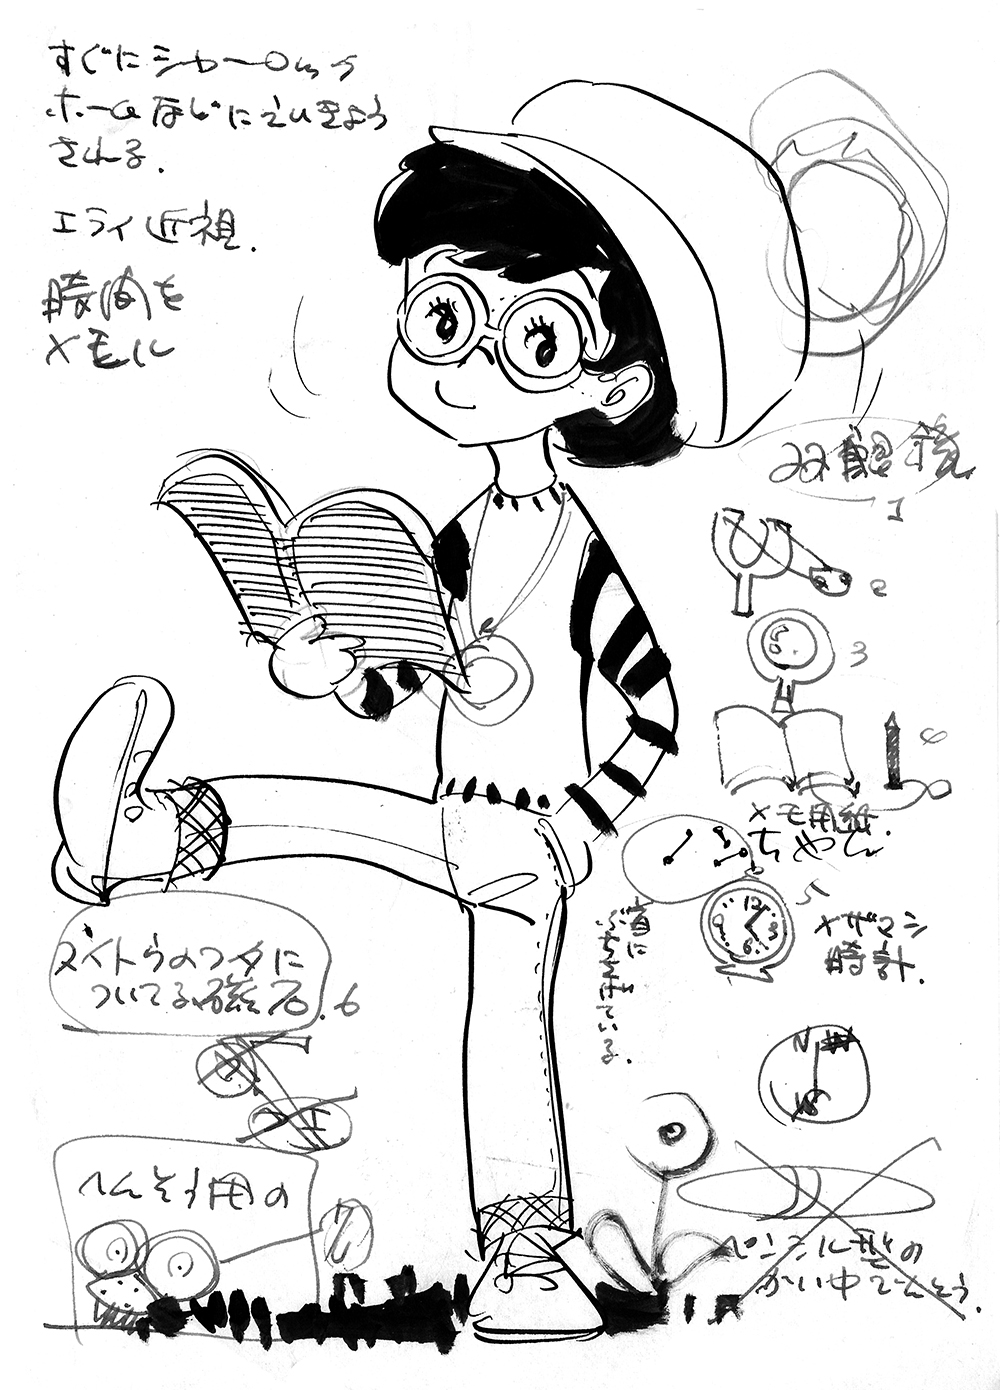 すぐにシャーロック
ホームなどにえいきょう
される.
エライ近視.
時間を
メモル
双眼鏡
1
2
3
4
メモ用紙.
ちゃん
5
メザマシ
時計.
12
3
6
9
首に
ぶらさげている.
スイトウのフタに
ついてる磁石. 6
N
へんそう用の
ペンシル型の
かい中でんとう.